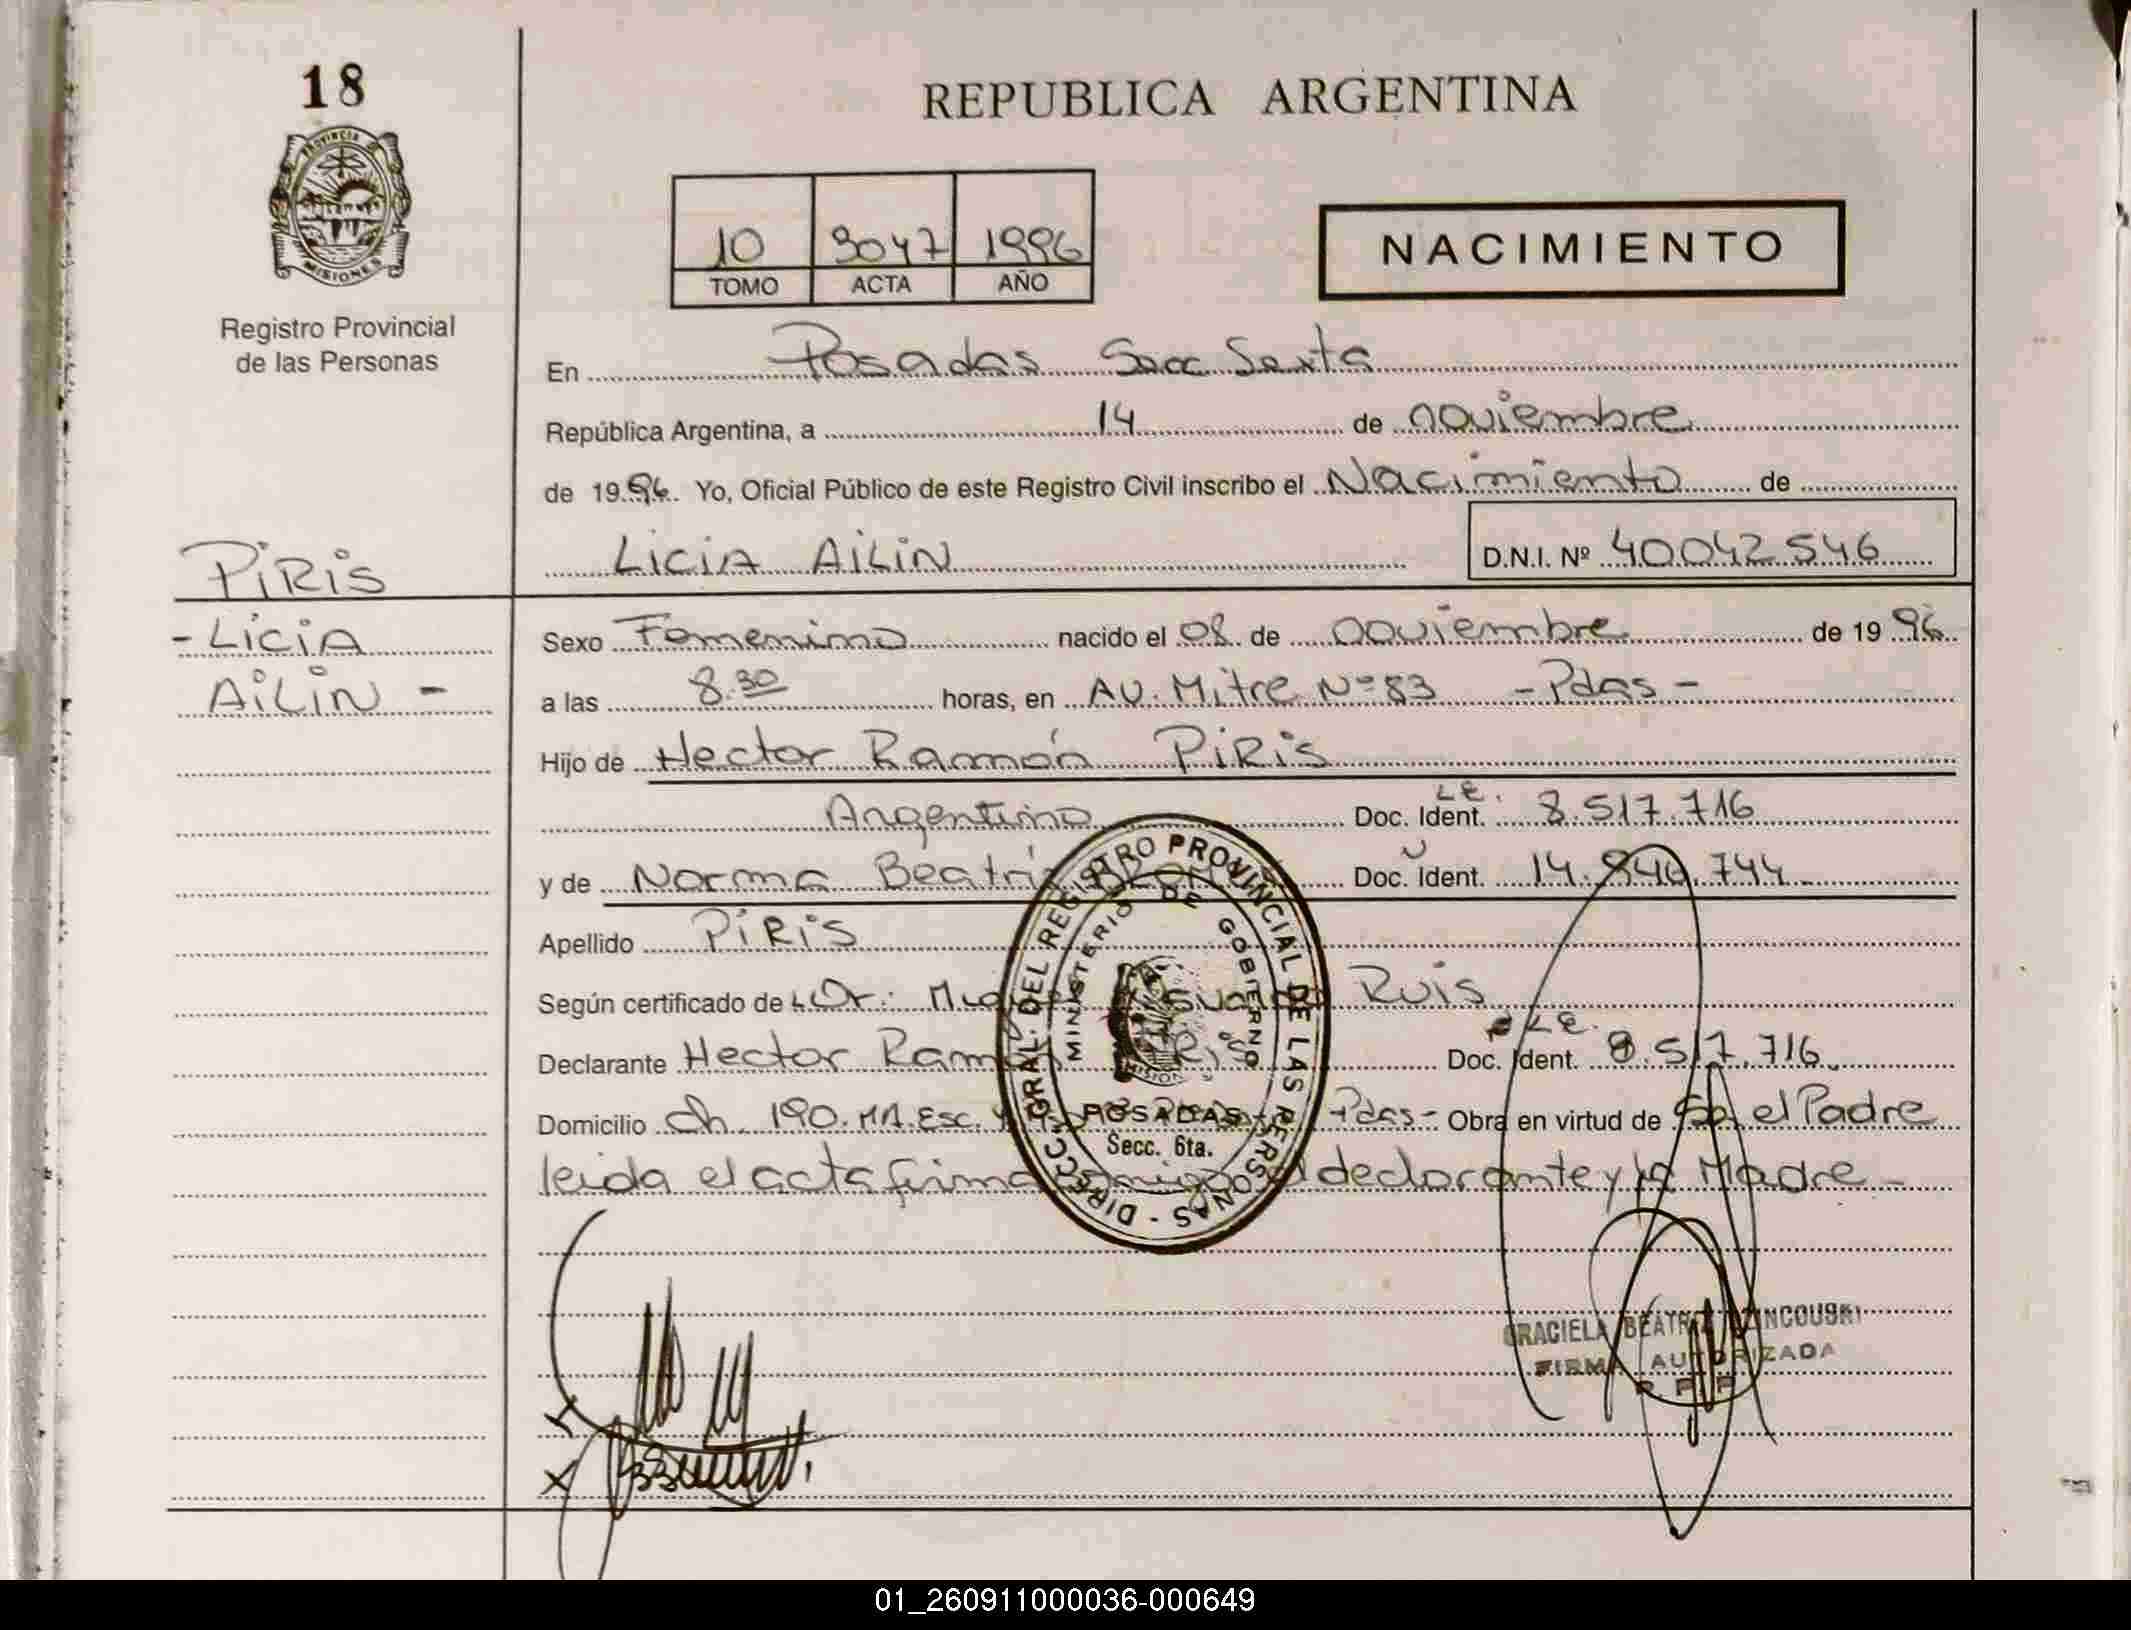 18
PROVINCIA DE
MISIONES
Registro Provincial
de las Personas
REPUBLICA ARGENTINA
10 3047 1996
TOMO ACTA AÑO
NACIMIENTO
En Posadas Secc Sexta
República Argentina, a 14 de noviembre
de 1996. Yo, Oficial Público de este Registro Civil inscribo el Nacimiento de
LICIA AILIN
D.N.I. Nº 40042.546
PIRIS
- LICIA
AILIN -
Sexo Femenino nacido el 08 de noviembre de 1996
a las 8.30 horas, en AV. Mitre Nº 83 - Pdas -
Hijo de Hector Ramón PIRIS
Argentino Doc. Ident. L.E. 8.517.716
y de Norma Doc. Ident. 14.840.744
Apellido PIRIS
Según certificado de L Dr: Ruis
Declarante Hector Doc. Ident. L.E. 8.517.716
Domicilio Ch. 190. MA. Esc. Pdas - Obra en virtud de Se el Padre
leida el acta firma declarante y la Madre -
DIRECC. GRAL. DEL REGISTRO PROVINCIAL DE LAS PERSONAS -
MINISTERIO DE GOBIERNO
POSADAS
Secc. 6ta.
GRACIELA BEATRIZ
FIRMA AUTORIZADA
R. P. P.
01_260911000036-000649